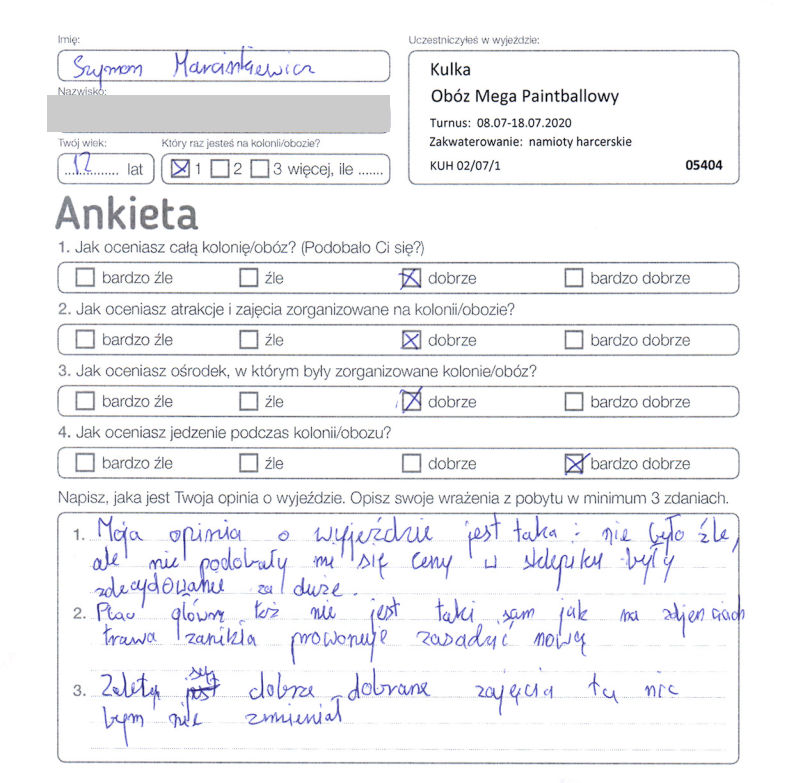 Imię:
Szymon Marcinkiewicz
Nazwisko:
Twój wiek:
12 lat
Który raz jesteś na kolonii/obozie?
1 2 3 więcej, ile .......
Uczestniczyłeś w wyjeździe:
Kulka
Obóz Mega Paintballowy
Turnus: 08.07-18.07.2020
Zakwaterowanie: namioty harcerskie
KUH 02/07/1 05404
Ankieta
1. Jak oceniasz całą kolonię/obóz? (Podobało Ci się?)
bardzo źle źle dobrze bardzo dobrze
2. Jak oceniasz atrakcje i zajęcia zorganizowane na kolonii/obozie?
bardzo źle źle dobrze bardzo dobrze
3. Jak oceniasz ośrodek, w którym były zorganizowane kolonie/obóz?
bardzo źle źle dobrze bardzo dobrze
4. Jak oceniasz jedzenie podczas kolonii/obozu?
bardzo źle źle dobrze bardzo dobrze
Napisz, jaka jest Twoja opinia o wyjeździe. Opisz swoje wrażenia z pobytu w minimum 3 zdaniach.
1. Moja opinia o wyjeździe jest taka : nie było źle,
ale nie podobały mi się ceny w sklepiku były
zdecydowanie za duże.
2. Plac główny też nie jest taki sam jak na zdjenciach
trawa zanikła prowonuje zasadzić nową
3. Zalety są dobrze dobrane zajęcia tu nic
bym nie zmieniał